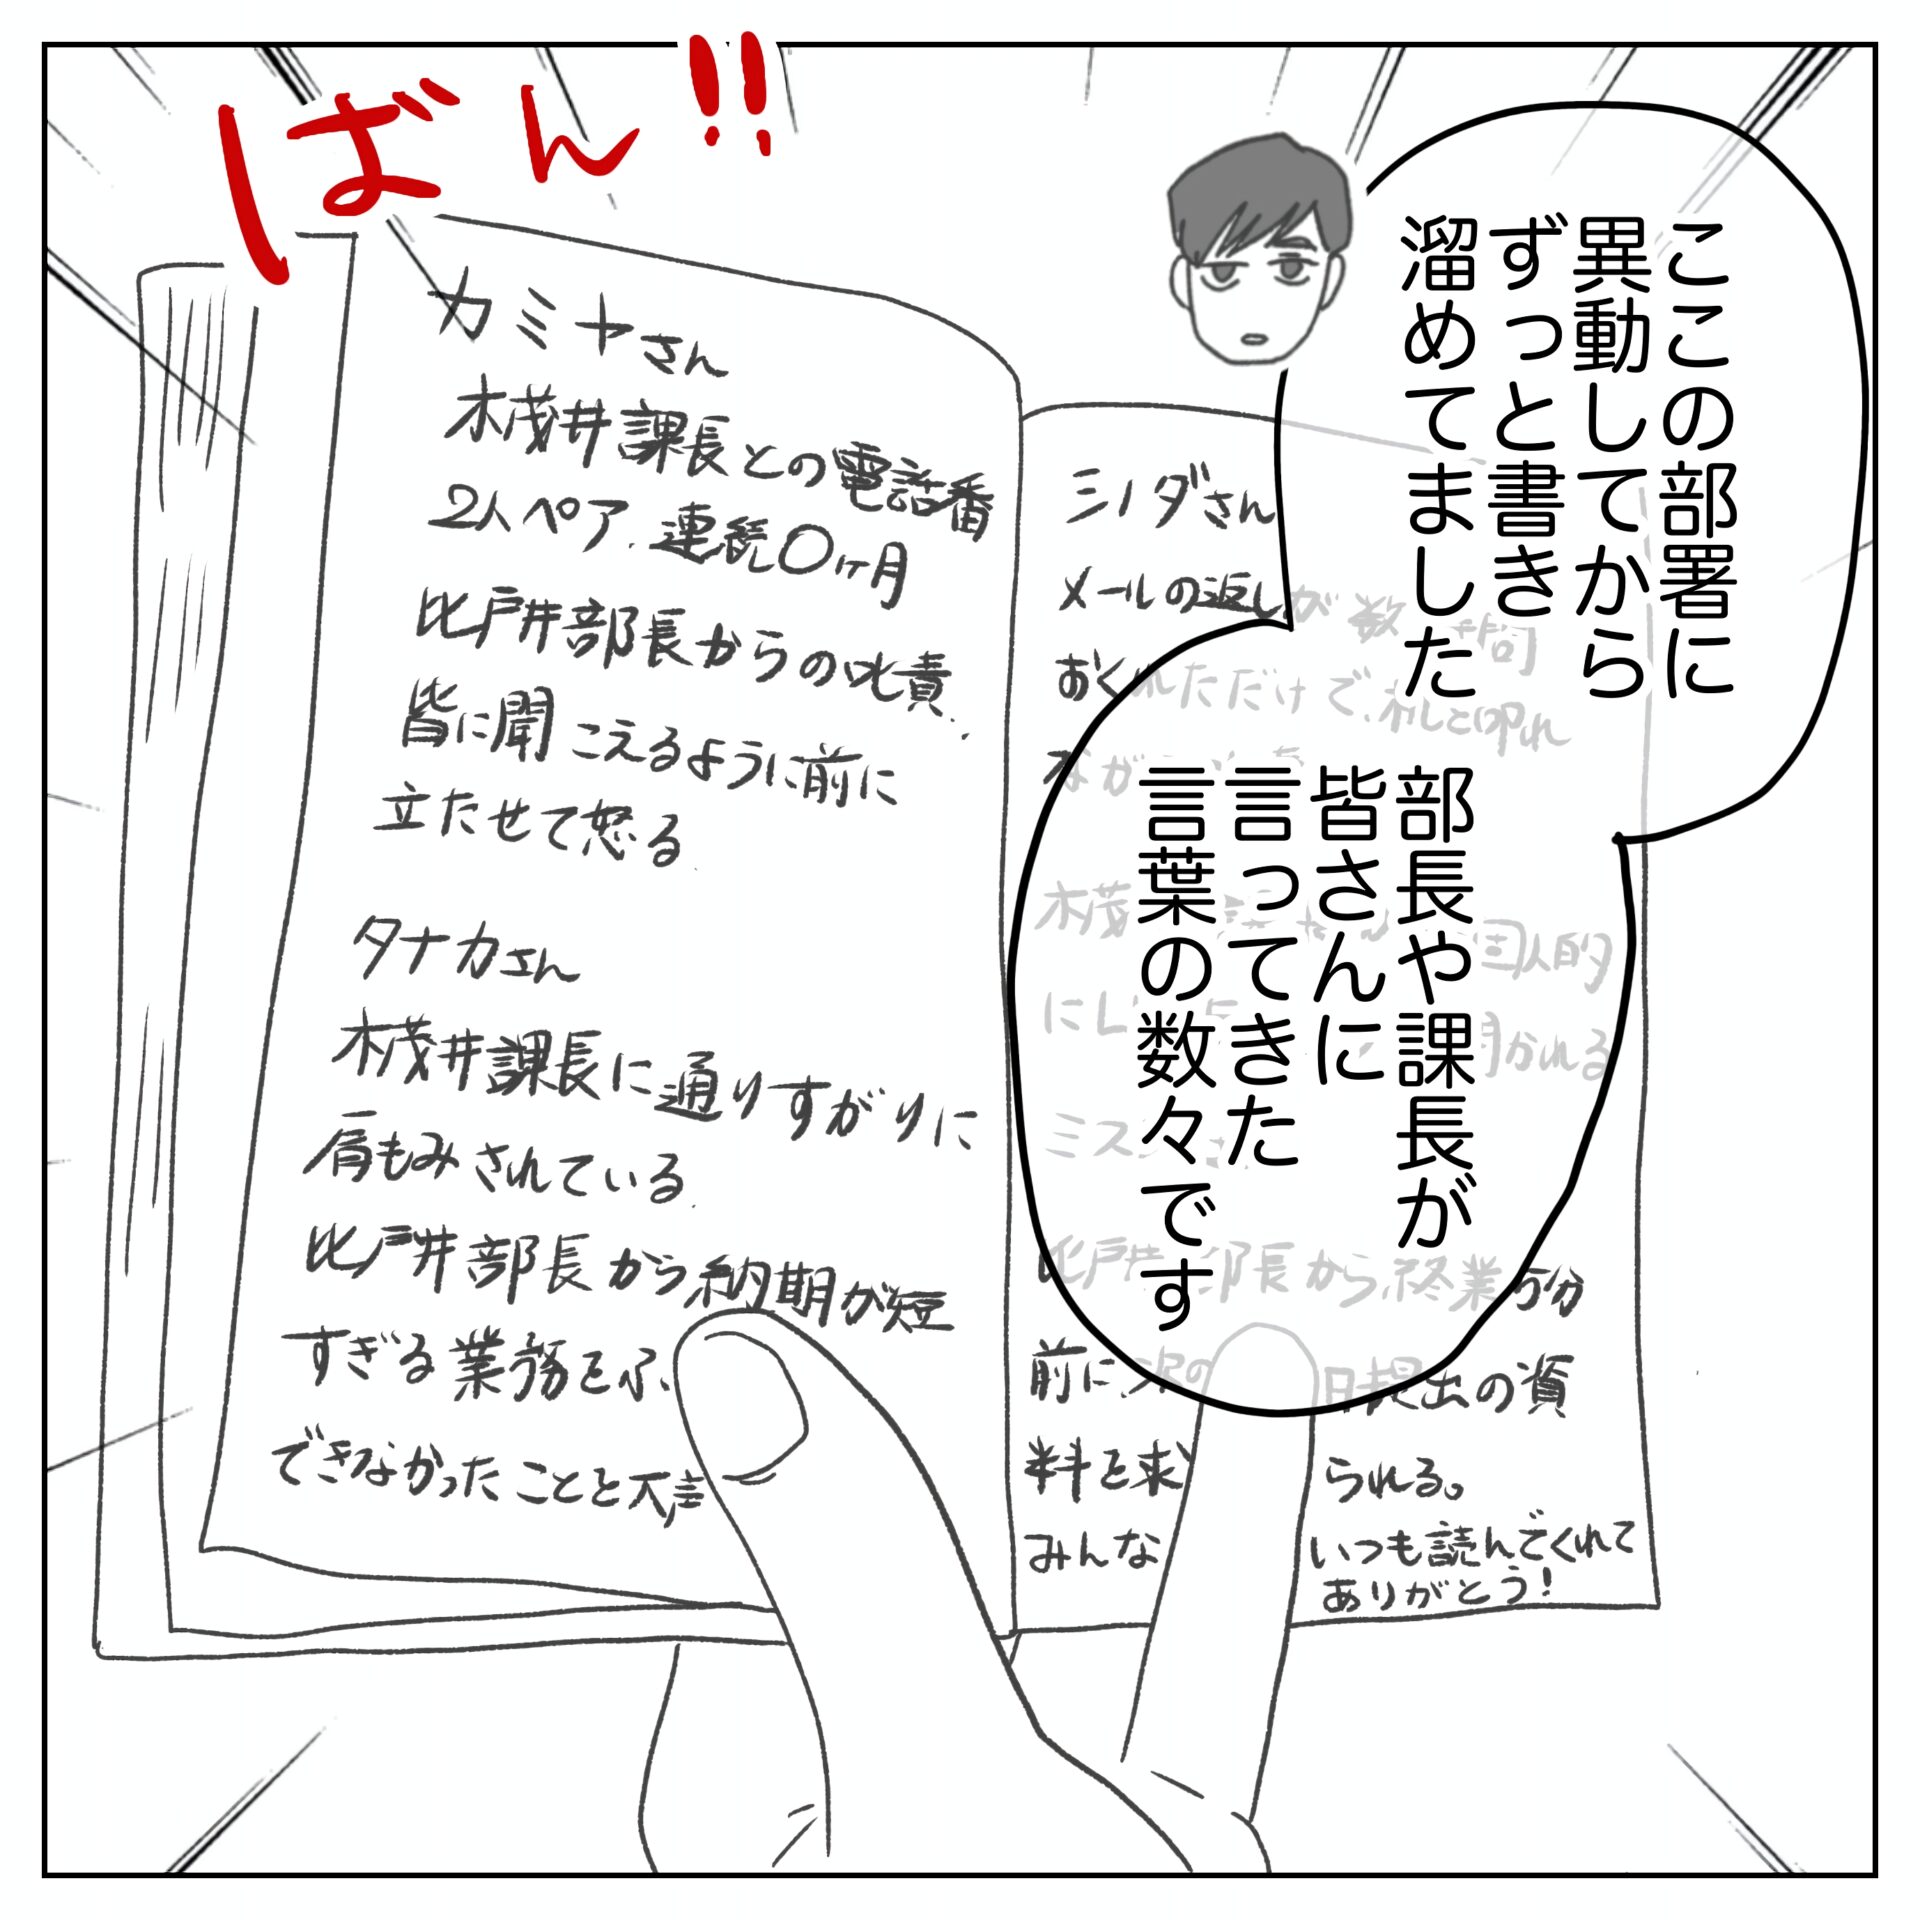 ばん!!
ここの部署に
異動してから
ずっと書き
溜めてました
部長や課長が
皆さんに
言ってきた
言葉の数々です
カミヤさん
木茂井課長との電話番
2人ペア.連続〇ヶ月
比戸井部長からの叱責.
皆に聞こえるように前に
立たせて怒る
タナカさん
木茂井課長に通りすがりに
肩もみされている.
比戸井部長から納期が短
すぎる業務をふ
できなかったことを大声
シノダさん
メールの返しが数
おくれただけで、
木茂
個人的
にし
かれる
ミス
比戸井部長から終業5分
前に次の日提出の資
料を求
られる。
みんな
いつも読んでくれて
ありがとう!